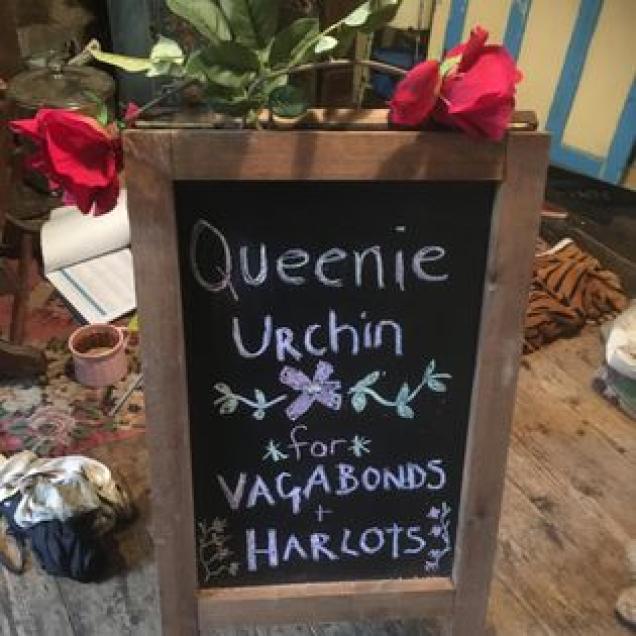 Queenie
Urchin
for
VAGABONDS
+
HARLOTS